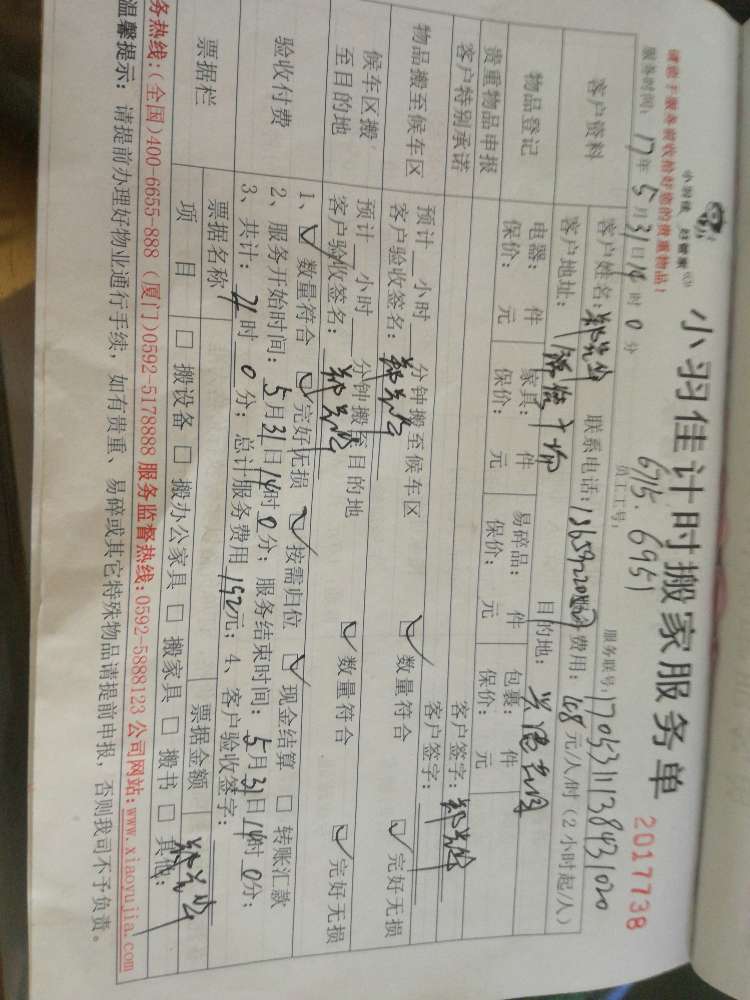 小羽佳计时搬家服务单
2017738
请您于服务前收拾好您的贵重物品！
6715. 6951
员工工号：
服务联号：17053111384931020
服务时间：17年5月31日14时0分
客户资料
客户姓名： 联系电话： 费用： 元/人/时（2小时起/人）
客户地址： 目的地：
物品登记
电器： 件 家具： 件 易碎品： 件 包裹： 件
保价： 元 保价： 元 保价： 元 保价： 元
贵重物品申报 客户签字：
客户特别承诺 客户签字：
物品搬至候车区
预计 小时 分钟搬至候车区 数量符合 完好无损
客户验收签名：
候车区搬至目的地
预计 小时 分钟搬至目的地 数量符合 完好无损
客户验收签名：
验收付费
1、 数量符合 完好无损 按需归位 现金结算 转账汇款
2、服务开始时间：5月31日14时0分；服务结束时间：5月31日 时0分；
3、共计： 时0分；总计服务费用192元；4、客户验收签字：
票据栏
票据名称 票据金额
项 目 搬设备 搬办公家具 搬家具 搬书 其他：
务热线：(全国)400-6655-888 (厦门)0592-5178888 服务监督热线：0592-5888123 公司网站：www.xiaoyujia.com
温馨提示：请提前办理好物业通行手续，如有贵重、易碎或其它特殊物品请提前申报，否则我司不予负责。